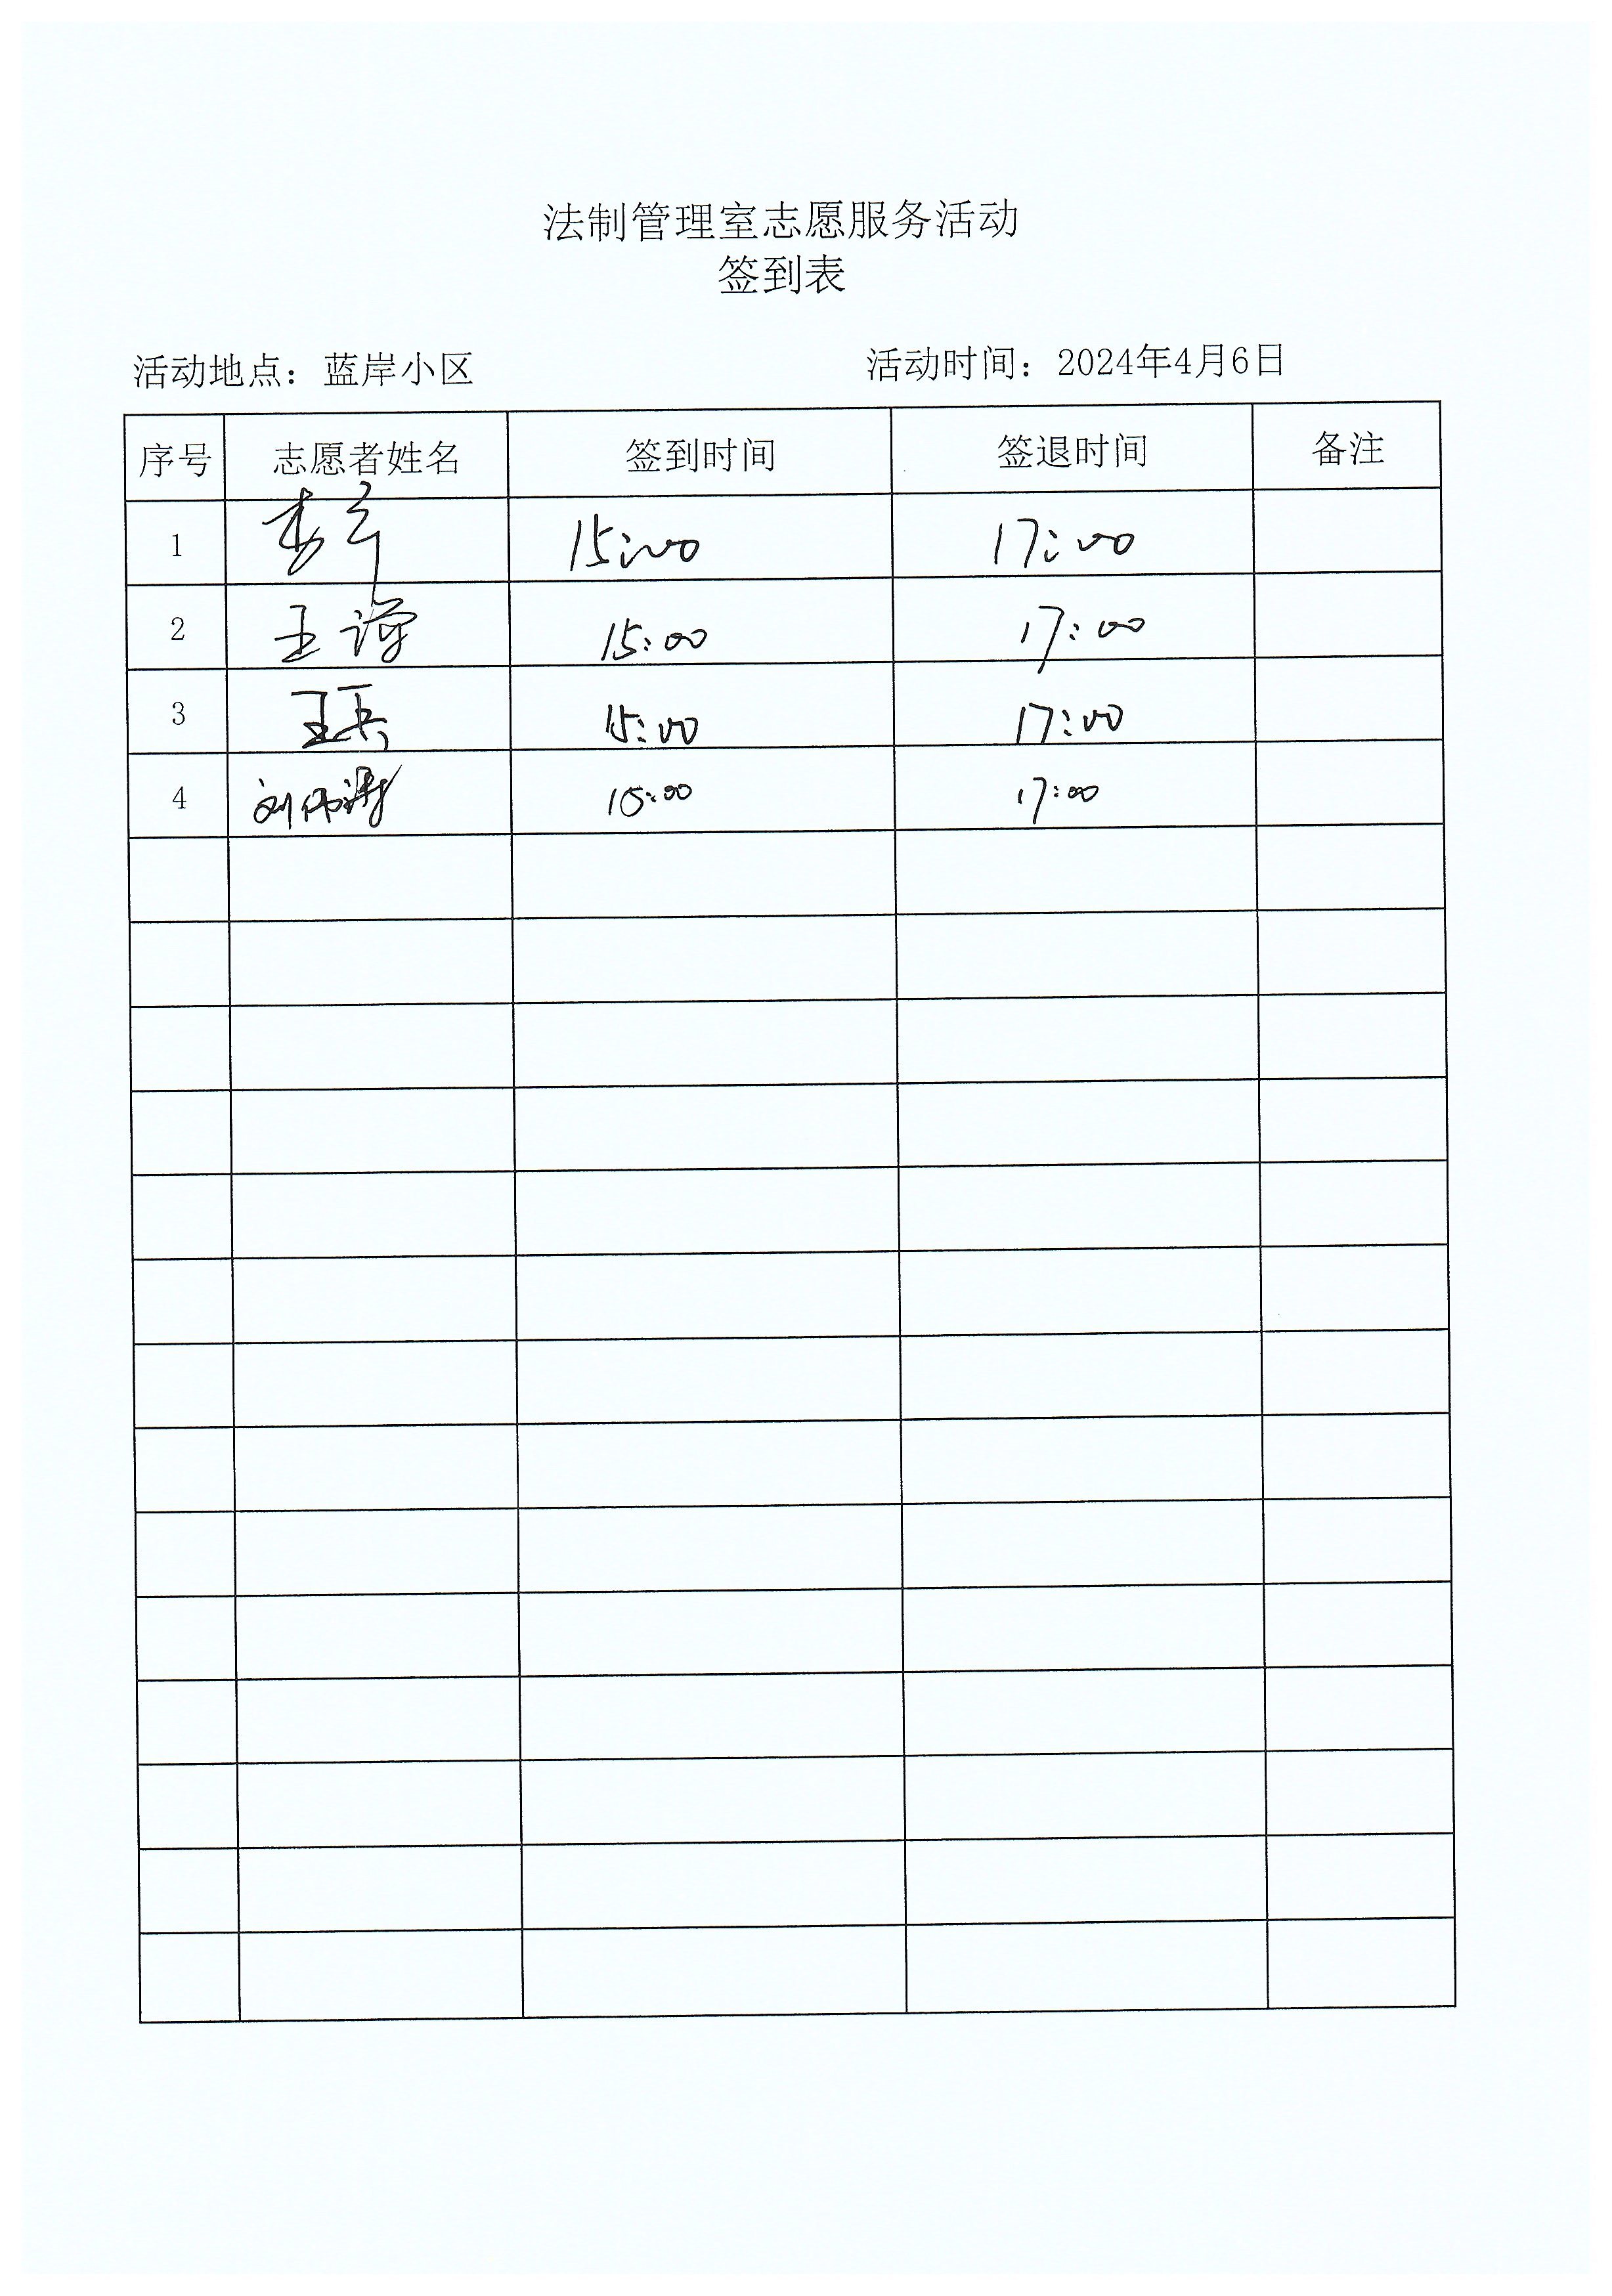 法制管理室志愿服务活动
签到表
活动地点：蓝岸小区 活动时间：2024年4月6日
序号 志愿者姓名 签到时间 签退时间 备注
1 15:00 17:00
2 王 15:00 17:00
3 王兵 15:00 17:00
4 刘伟涛 15:00 17:00